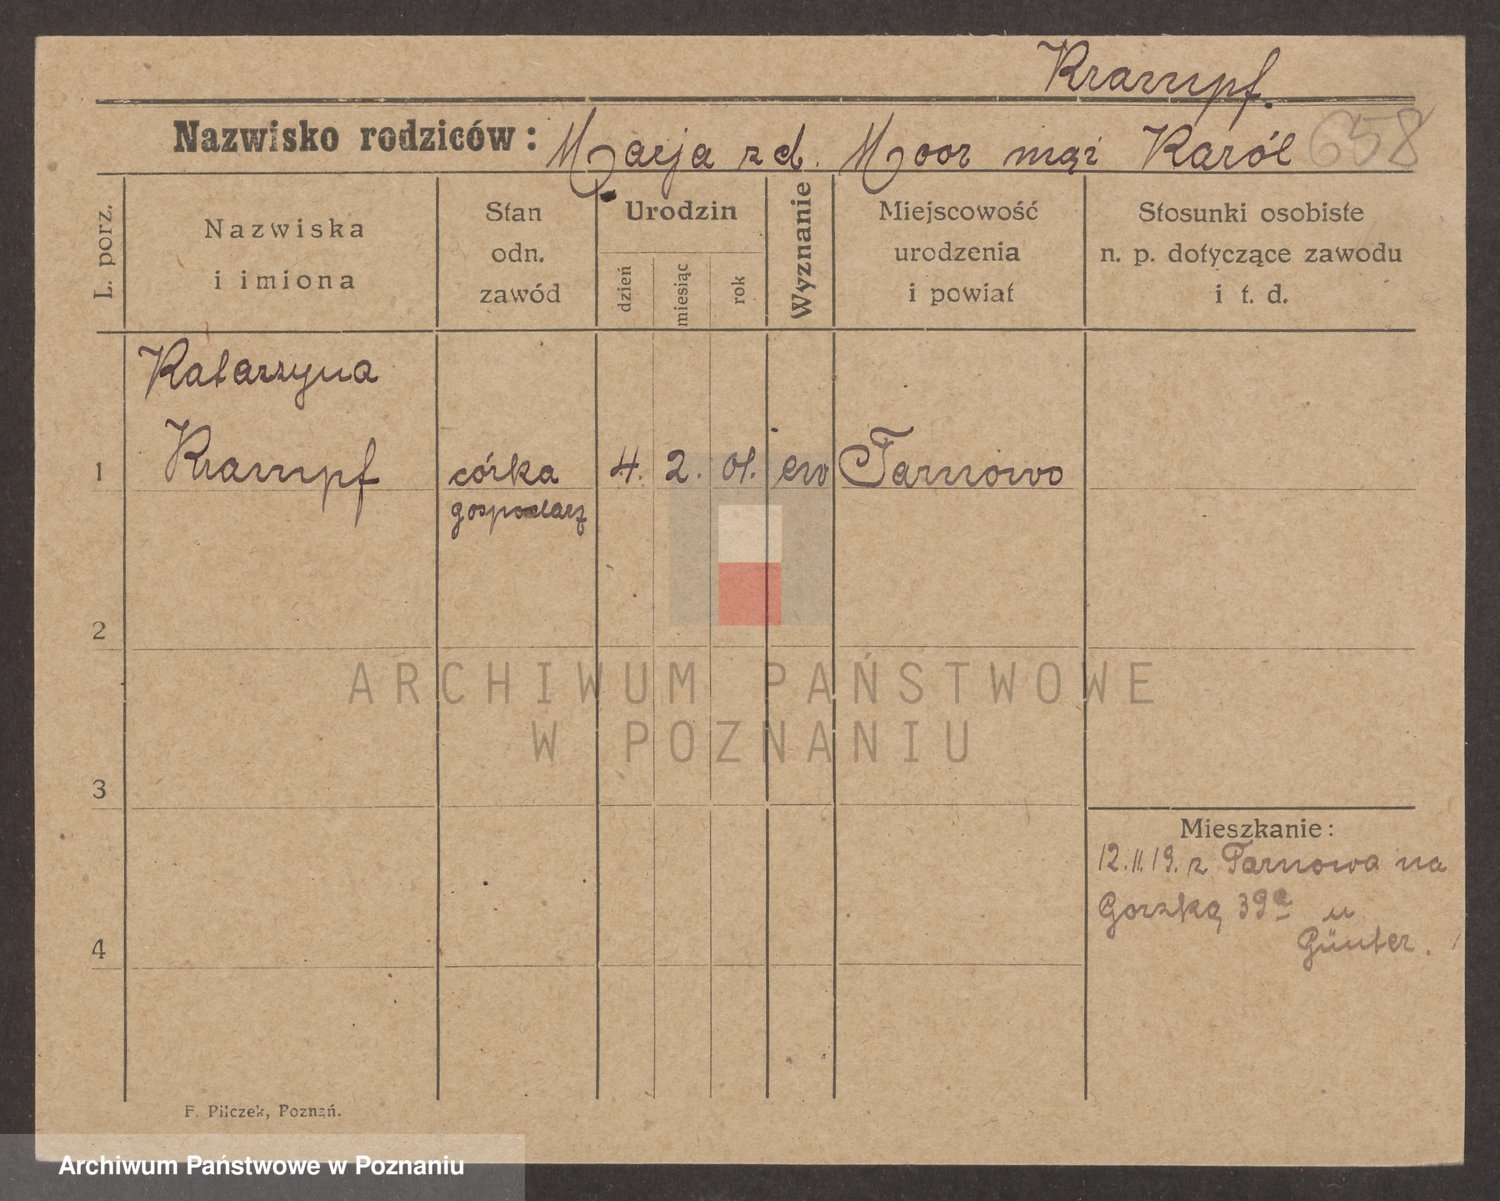 Krampf.
Nazwisko rodziców: Marja zd. Moor mąż Karól 658
L. porz.
Nazwiska
i imiona
Stan
odn.
zawód
Urodzin
dzień
miesiąc
rok
Wyznanie
Miejscowość
urodzenia
i powiat
Stosunki osobiste
n. p. dotyczące zawodu
i t. d.
Katarzyna
1 Krampf córka 4. 2. 01. ew Tarnowo
gospodarz
2
3
Mieszkanie:
12.11.19. z Tarnowa na
Gorzką 39a u
Günter.
4
F. Pilczek, Poznań.
ARCHIWUM PAŃSTWOWE
W POZNANIU
Archiwum Państwowe w Poznaniu